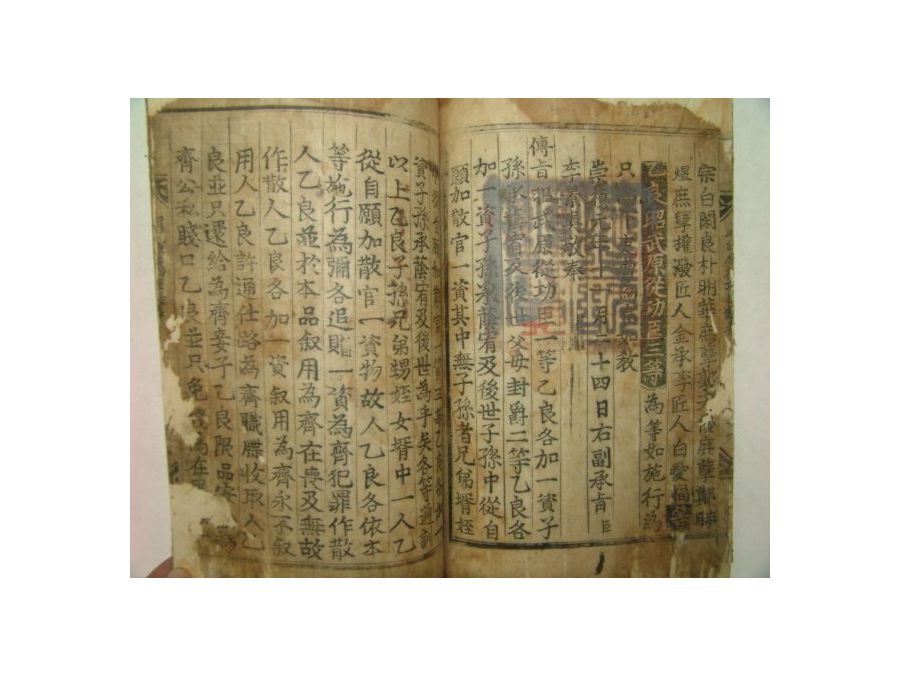 宗白閑良朴明 庶孽
煜庶孽權潑匠人金承李匠人白愛福等
乙良昭武原從功臣三等為等如施行為
只 教
崇德元年十二月二十四日右副承旨臣
李景 敬奉
傳旨昭武原從功臣一等乙良各加一資子
孫承蔭宥及後世父母封爵二等乙良各
加一資子孫承蔭宥及後世子孫中從自
願加散官一資其中無子孫者兄弟壻姪
三等乙良各加一
資子孫承蔭宥及後世為乎矣各等通訓
以上乙良子孫兄弟甥姪女壻中一人乙
從自願加散官一資物故人乙良各依本
等施行為彌各追贈一資為齊犯罪作散
人乙良並於本品叙用為齊在喪及無故
作散人乙良各加一資叙用為齊永不叙
用人乙良許通仕路為齊職牒收取人乙
良並只還給為齊妾子乙良限品
齊公私賤口乙良並只免賤為在